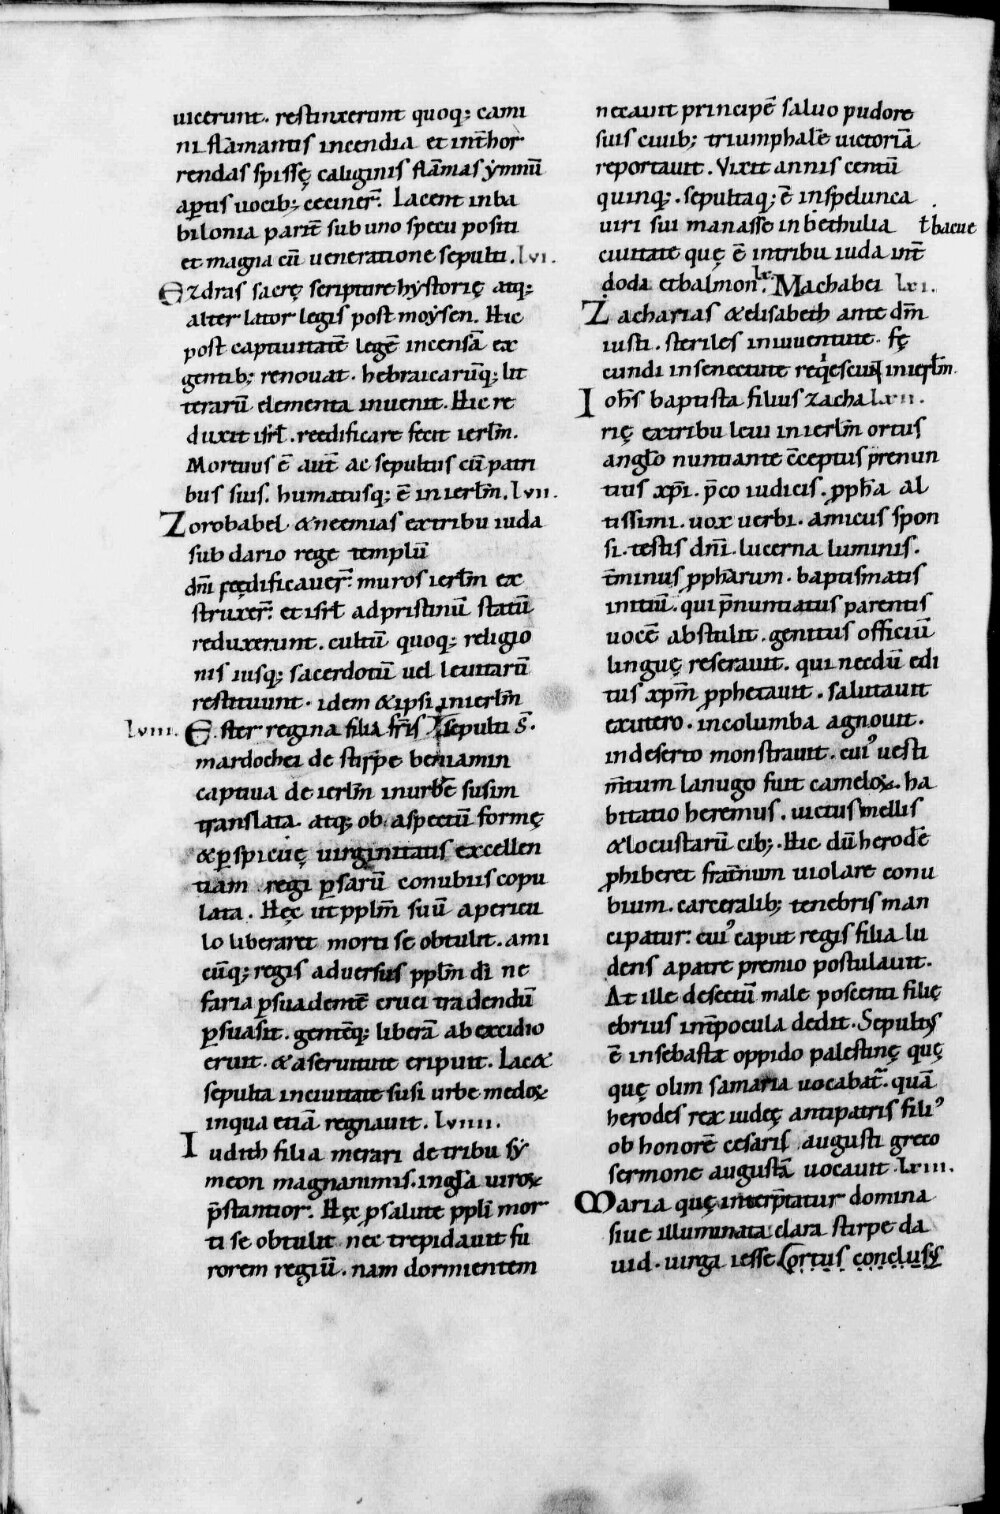 uicerunt. restinxerunt quoq; cami
ni flāmantis incendia et int̄hor
rendas spissę caliginis flāmas ẏmnū
aptis uocib; ceciner̄. Iacent inba
bilonia parit̄ sub uno specu positi
et magna cū ueneratione sepulti. lvi.
Ezdras sacrę scripture hẏstorię atq;
alter lator legis post moẏsen. Hic
post captiuitatē legē incensā ex
gentib; renouat. hebraicarūq; lit
terarū elementa inuenit. Hic re
duxit isrł. reedificare fecit ierlm̄.
Mortuus ē aut̄ ac sepultus cū patri
bus suis. humatusq; ē in ierlm̄. lvii.
Zorobabel &neemias extribu iuda
sub dario rege templū
dn̄i reędificauer̄. muros ierlm̄ ex
struxer̄. et isrł adpristinū statū
reduxerunt. cultū quoq; religio
nis iusq; sacerdotū uel leuitarū
restituunt. idem &ipsi inierlm̄
sepulti s̄.
lviii. Ester regina filia fr̄is
mardochei de stirpe beniamin
captiua de ierlm̄ inurbē susim
translata. atq; ob aspectū formę
&pspicuę uirginitatis excellen
tiam regi psarū conubiis copu
lata. Hęc ut pplm̄ suū apericu
lo liberaret morti se obtulit. ami
cūq; regis aduersus pplm̄ dī ne
faria psuadentē cruci tradendū
psuasit. gentēq; liberā abexcidio
eruit. &aseruitute eripuit. Iac&
sepulta inciuitate susi urbe medoꝝ
inqua etiā regnauit. lviiii.
Iudith filia merari detribu sẏ
meon magnanimis. inglā uiroꝝ
p̄stantior. Hęc psalute ppli mor
ti se obtulit nec trepidauit fu
rorem regiū. nam dormientem
necauit principē saluo pudore
suis ciuib; triumphalē uictoriā
reportauit. Vixit annis centū
quinq;. sepultaq; ē inspelunca
uiri sui manasse inbethulia ł bacue
ciuitate quę ē intribu iuda int̄
doda etbalmon. lx. Machabei lxi.
Zacharias &elisabeth ante dm̄
iusti. steriles iniuuentute. fę
cundi insenectute inierlm̄.
Iohs̄ baptista filius zacha lxii.
rię extribu leui inierlm̄ ortus
anglo nuntiante c̄ceptus p̄renun
tius xp̄i. p̄co iudicis. ppha al
tissimi. uox uerbi. amicus spon
si. testis dn̄i. lucerna luminis.
t̄minus ppharum. baptismatis
initiū. qui p̄nuntiatus parentis
uocē abstulit. genitus officiū
linguę reserauit. qui necdū edi
tus xpm̄ pphetauit. salutauit
exutero. incolumba agnouit.
indeserto monstrauit. cui' uesti
m̄tum lanugo fuit cameloꝝ. ha
bitatio heremus. uictus mellis
&locustarū cib;. Hic dū herodē
phiberet frat̄num uiolare conu
bium. carceralib; tenebris man
cipatur: cui' caput regis filia lu
dens apatre premio postulauit.
At ille desectū male poscenti filię
ebrius int̄pocula dedit. Sepultus
ē insebasta oppido palestinę quę
quę olim samaria uocabat̄. quā
herodes rex iudeę antipatris fili'
ob honorē cesaris augusti greco
sermone augustā uocauit. lxiii.
Maria quę interp̄tatur domina
siue illuminata clara stirpe da
uid. uirga iesse ortus conclusus